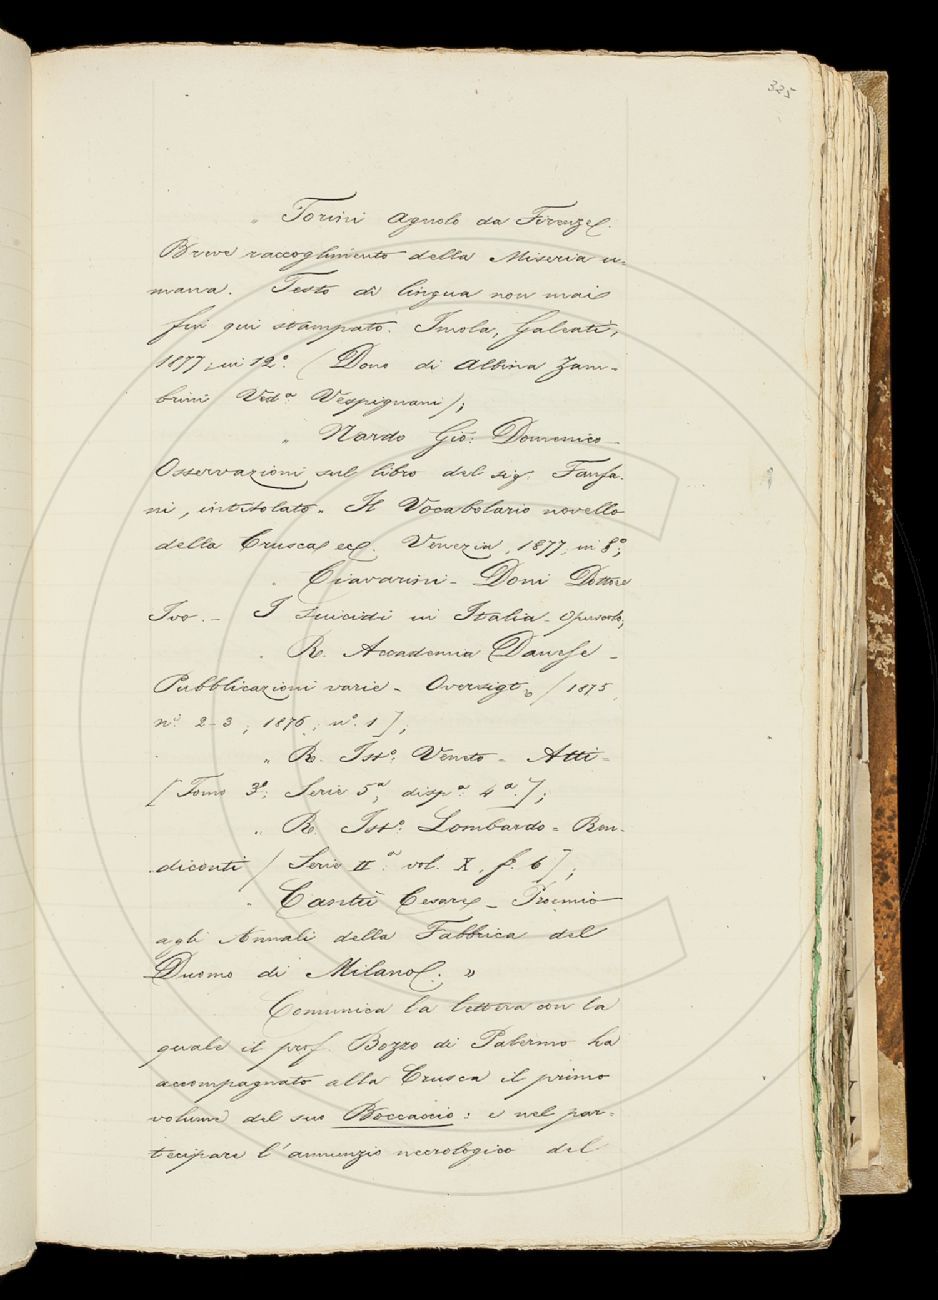 325
„ Torini Agnolo da Firenze.
Breve raccoglimento della Miseria u-
mana. Testo di lingua non mai
fin qui stampato. Imola, Galeati,
1877, in 12º. (Dono di Albina Zam-
brini Vedª Vespignani);
„ Nardo Gio: Domenico -
Osservazioni sul libro del sig. Fanfa-
ni, intitolato - Il Vocabolario novello
della Crusca ecc. Venezia, 1877, in 8º;
Ciavarini - Doni Dottore
Ivo. - I Suicidi in Italia - Opuscolo;
R. Accademia Danese -
Pubblicazioni varie - Oversigt (1875,
nⁱ 2-3; 1876, nº. 1);
„ R. Istº. Veneto - Atti -
[Tomo 3º, Serie 5ª, dispª. 4ª.];
„ R. Istº. Lombardo - Ren-
diconti (Serie IIª. vol. X, f. 6);
Cantù Cesare - Proemio
agli Annali della Fabbrica del
Duomo di Milano. „
Comunica la lettera con la
quale il prof. Bozzo di Palermo ha
accompagnato alla Crusca il primo
volume del suo Boccaccio: e nel par-
tecipare l'annunzio necrologico del